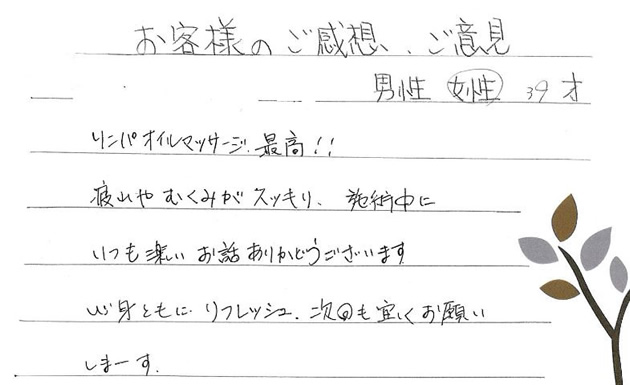 お客様のご感想、ご意見
男性 女性 39才
リンパオイルマッサージ、最高!!
疲れやむくみがスッキリ、施術中に
いつも楽しいお話ありがとうございます
心身ともにリフレッシュ、次回も宜しくお願い
しまーす.